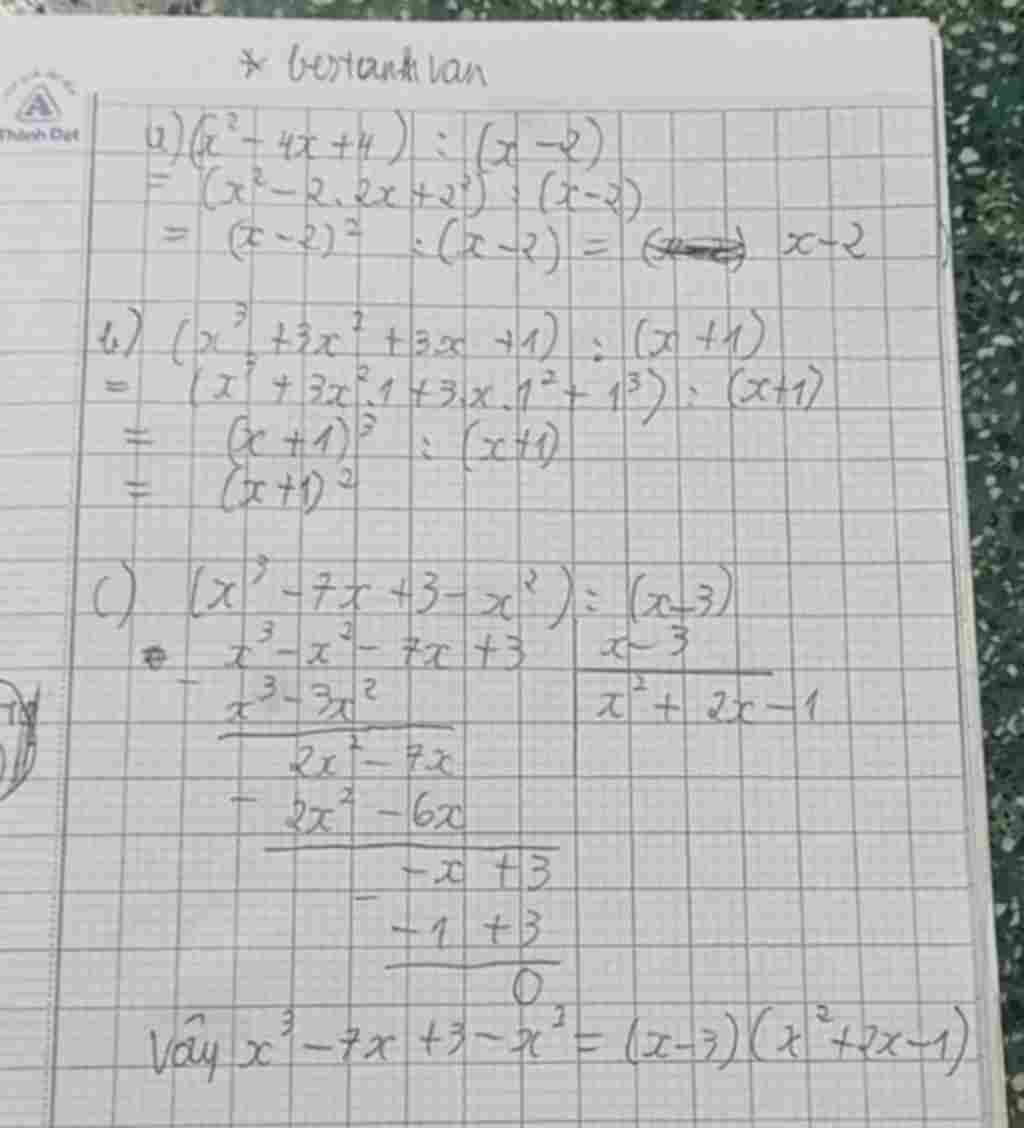 * bertanhvan
Thành Đạt
a) (x² - 4x + 4) : (x - 2)
= (x² - 2.2x + 2²) : (x - 2)
= (x - 2)² : (x - 2) = x - 2
b) (x³ + 3x² + 3x + 1) : (x + 1)
= (x³ + 3x².1 + 3.x.1² + 1³) : (x+1)
= (x + 1)³ : (x+1)
= (x+1)²
c) (x³ - 7x + 3 - x²) : (x - 3)
x³ - x² - 7x + 3 | x - 3
- x³ - 3x² | x² + 2x - 1
2x² - 7x
- 2x² - 6x
-x + 3
- -1 + 3
0
Vậy x³ - 7x + 3 - x² = (x-3)(x²+2x-1)